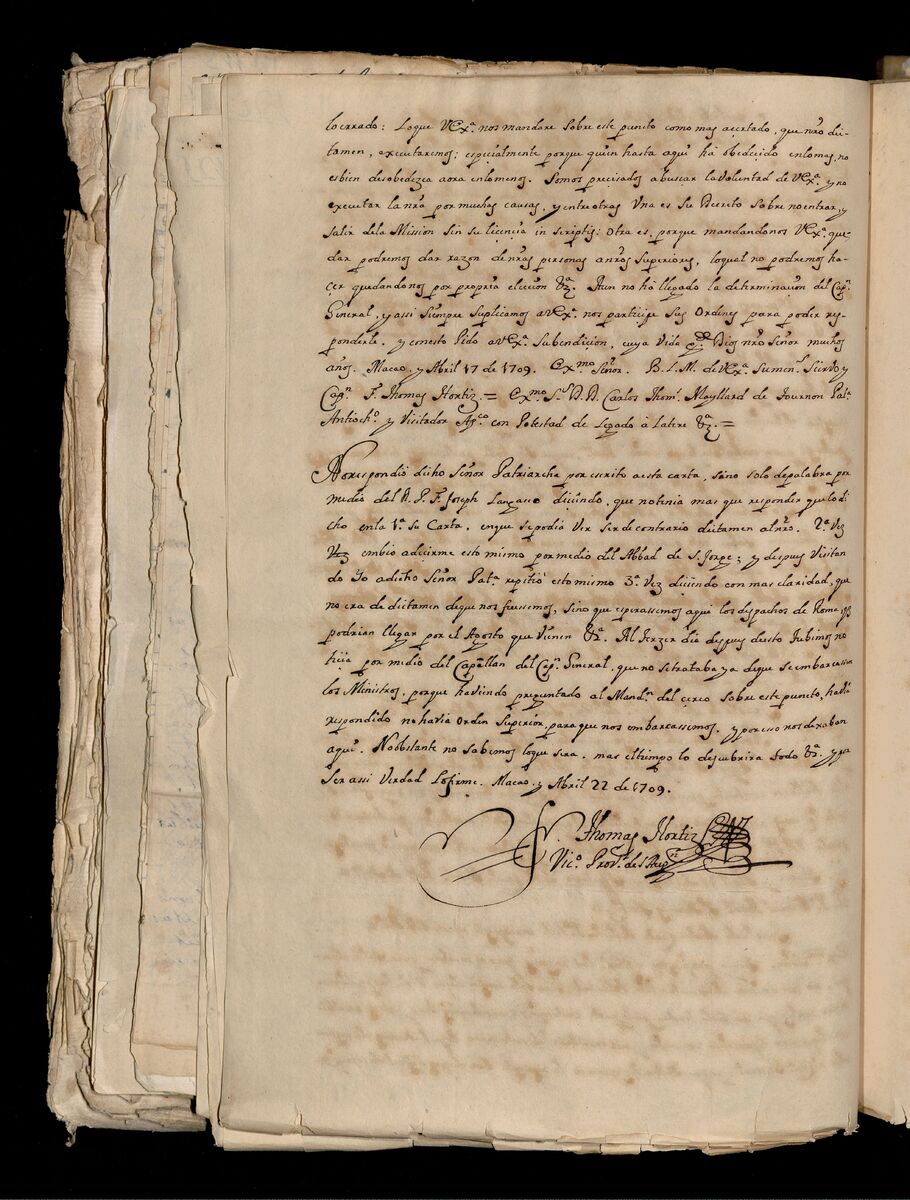 lo errado: Lo que VExª. nos mandare sobre este puncto como mas acertado, que nr̃o dic-
tamen, executaremos; especialmente porque quien hasta aquí há obedecido en lo mas, no
es bien desobedezca aora en lo menos. Somos precisados a buscar la voluntad de VExª. y no
executar la nr̃a por muchas causas, y entre otras Una es su Decreto sobre no entrar, y
salir de la Mission sin su licencia in scriptis: Otra es, porque mandandonos VExª. que-
dar podremos dar razon de nr̃as personas a nr̃os Superiores, lo qual no podremos ha-
çer quedandonos por propria eleccion &ª. Aun no há llegado la determinacion del Capⁿ.
General, y assi siempre suplicamos a VExª. nos participe sus Ordenes para poder res-
ponderle. y con esto Pido a VExª. su bendicion, cuya Vida gᵈᵉ. Dios nr̃o Señor muchos
años. Macao, y Abril 17 de 1709. Exᵐᵒ. Señʳ. B. L. M. de VExª. su menʳ. Siervo, y
Capⁿ. F. Thomas Hortiz = Exᵐᵒ. Sʳ. D. D. Carlos Thomˢ. Mayllard de Tournon Patª.
Antiochº. y Visitador Apᶜᵒ. con Potestad de Legado à Latere &ª. =
No respondió dicho Señor Patriarcha por escrito a esta carta, sino solo de palabra por
medio del R. P. F. Joseph diçiendo, que no tenia mas que responder que lo di-
cho en la 1ª. su Carta, en que se podia Ver ser de contrario dictamen al nr̃o. 2ª. Vez
Vez embio a deçirme esto mismo por medio del Abbad de S. Jorge; y despues Visitan
do Yo a dicho Señor Patª. repitió esto mismo 3ª. Vez diçiendo con mas claridad, que
no era de dictamen de que nos fuessemos, sino que esperassemos aqui los despachos de Roma q̃
podrian llegar por el Agosto que Viene &ª. Al Terzer dia despues desto tubimos no
tiçia por medio del Capellan del Capⁿ. General, que no se trataba ya de que se embarcassen
los Ministros, porque haviendo preguntado al Mandⁿ. del cerco sobre este puncto, havia
respondido no havia Orden Superior, para que nos embarcassemos, y por esso nos dexaban
aquí. No obstante no sabemos lo que sera, mas el tiempo lo descubrira todo &ª. y pa
ser assi Verdad Lo firme. Macao, y Abril 22 de 1709.
F. Thomas Hortiz
Vicº. Provˡ. de S. Augⁿ.